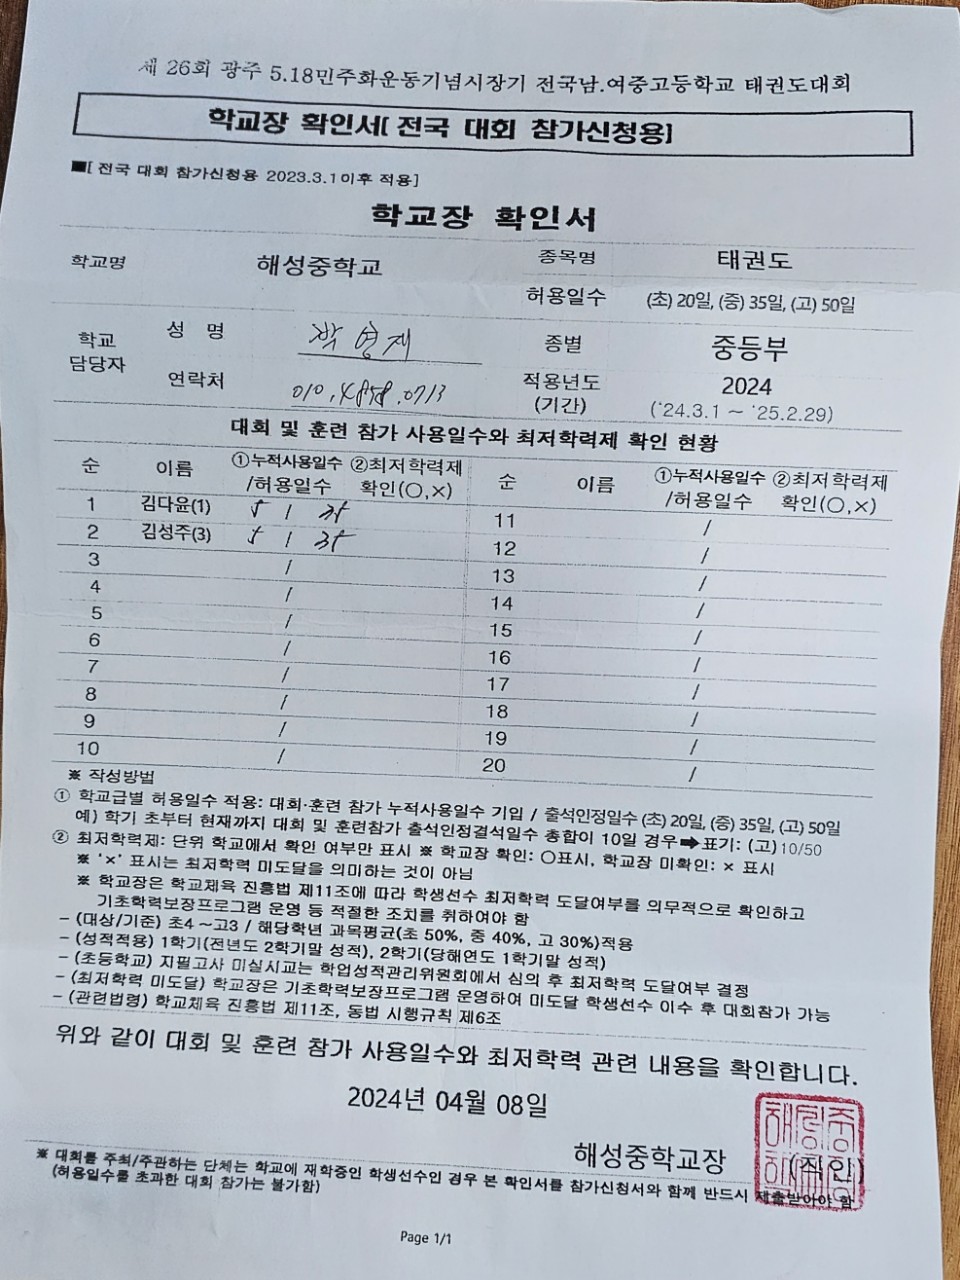 제 26회 광주 5.18민주화운동기념시장기 전국남.여중고등학교 태권도대회
학교장 확인서[ 전국 대회 참가신청용]
■[ 전국 대회 참가신청용 2023.3.1이후 적용]
학교장 확인서
학교명 해성중학교 종목명 태권도
허용일수 (초) 20일, (중) 35일, (고) 50일
학교 담당자 성 명 박영재 종별 중등부
연락처 010.4858.0713 적용년도 (기간) 2024 (‘24.3.1 ~ ‘25.2.29)
대회 및 훈련 참가 사용일수와 최저학력제 확인 현황
순 이름 ①누적사용일수 /허용일수 ②최저학력제 확인(○,×) 순 이름 ①누적사용일수 /허용일수 ②최저학력제 확인(○,×)
1 김다윤(1) 5 / 35 11 /
2 김성주(3) 5 / 35 12 /
3 / 13 /
4 / 14 /
5 / 15 /
6 / 16 /
7 / 17 /
8 / 18 /
9 / 19 /
10 / 20 /
※ 작성방법
① 학교급별 허용일수 적용: 대회·훈련 참가 누적사용일수 기입 / 출석인정일수 (초) 20일, (중) 35일, (고) 50일
예) 학기 초부터 현재까지 대회 및 훈련참가 출석인정결석일수 총합이 10일 경우➡표기: (고) 10/50
② 최저학력제: 단위 학교에서 확인 여부만 표시 ※ 학교장 확인: ○표시, 학교장 미확인: × 표시
※ ‘×’ 표시는 최저학력 미도달을 의미하는 것이 아님
※ 학교장은 학교체육 진흥법 제11조에 따라 학생선수 최저학력 도달여부를 의무적으로 확인하고
기초학력보장프로그램 운영 등 적절한 조치를 취하여야 함
- (대상/기준) 초4 ~고3 / 해당학년 과목평균(초 50%, 중 40%, 고 30%)적용
- (성적적용) 1학기(전년도 2학기말 성적), 2학기(당해연도 1학기말 성적)
- (초등학교) 지필고사 미실시교는 학업성적관리위원회에서 심의 후 최저학력 도달여부 결정
- (최저학력 미도달) 학교장은 기초학력보장프로그램 운영하여 미도달 학생선수 이수 후 대회참가 가능
- (관련법령) 학교체육 진흥법 제11조, 동법 시행규칙 제6조
위와 같이 대회 및 훈련 참가 사용일수와 최저학력 관련 내용을 확인합니다.
2024년 04월 08일
해성중학교장 (직인)
※ 대회를 주최/주관하는 단체는 학교에 재학중인 학생선수인 경우 본 확인서를 참가신청서와 함께 반드시 제출받아야 함
(허용일수를 초과한 대회 참가는 불가함)
Page 1/1